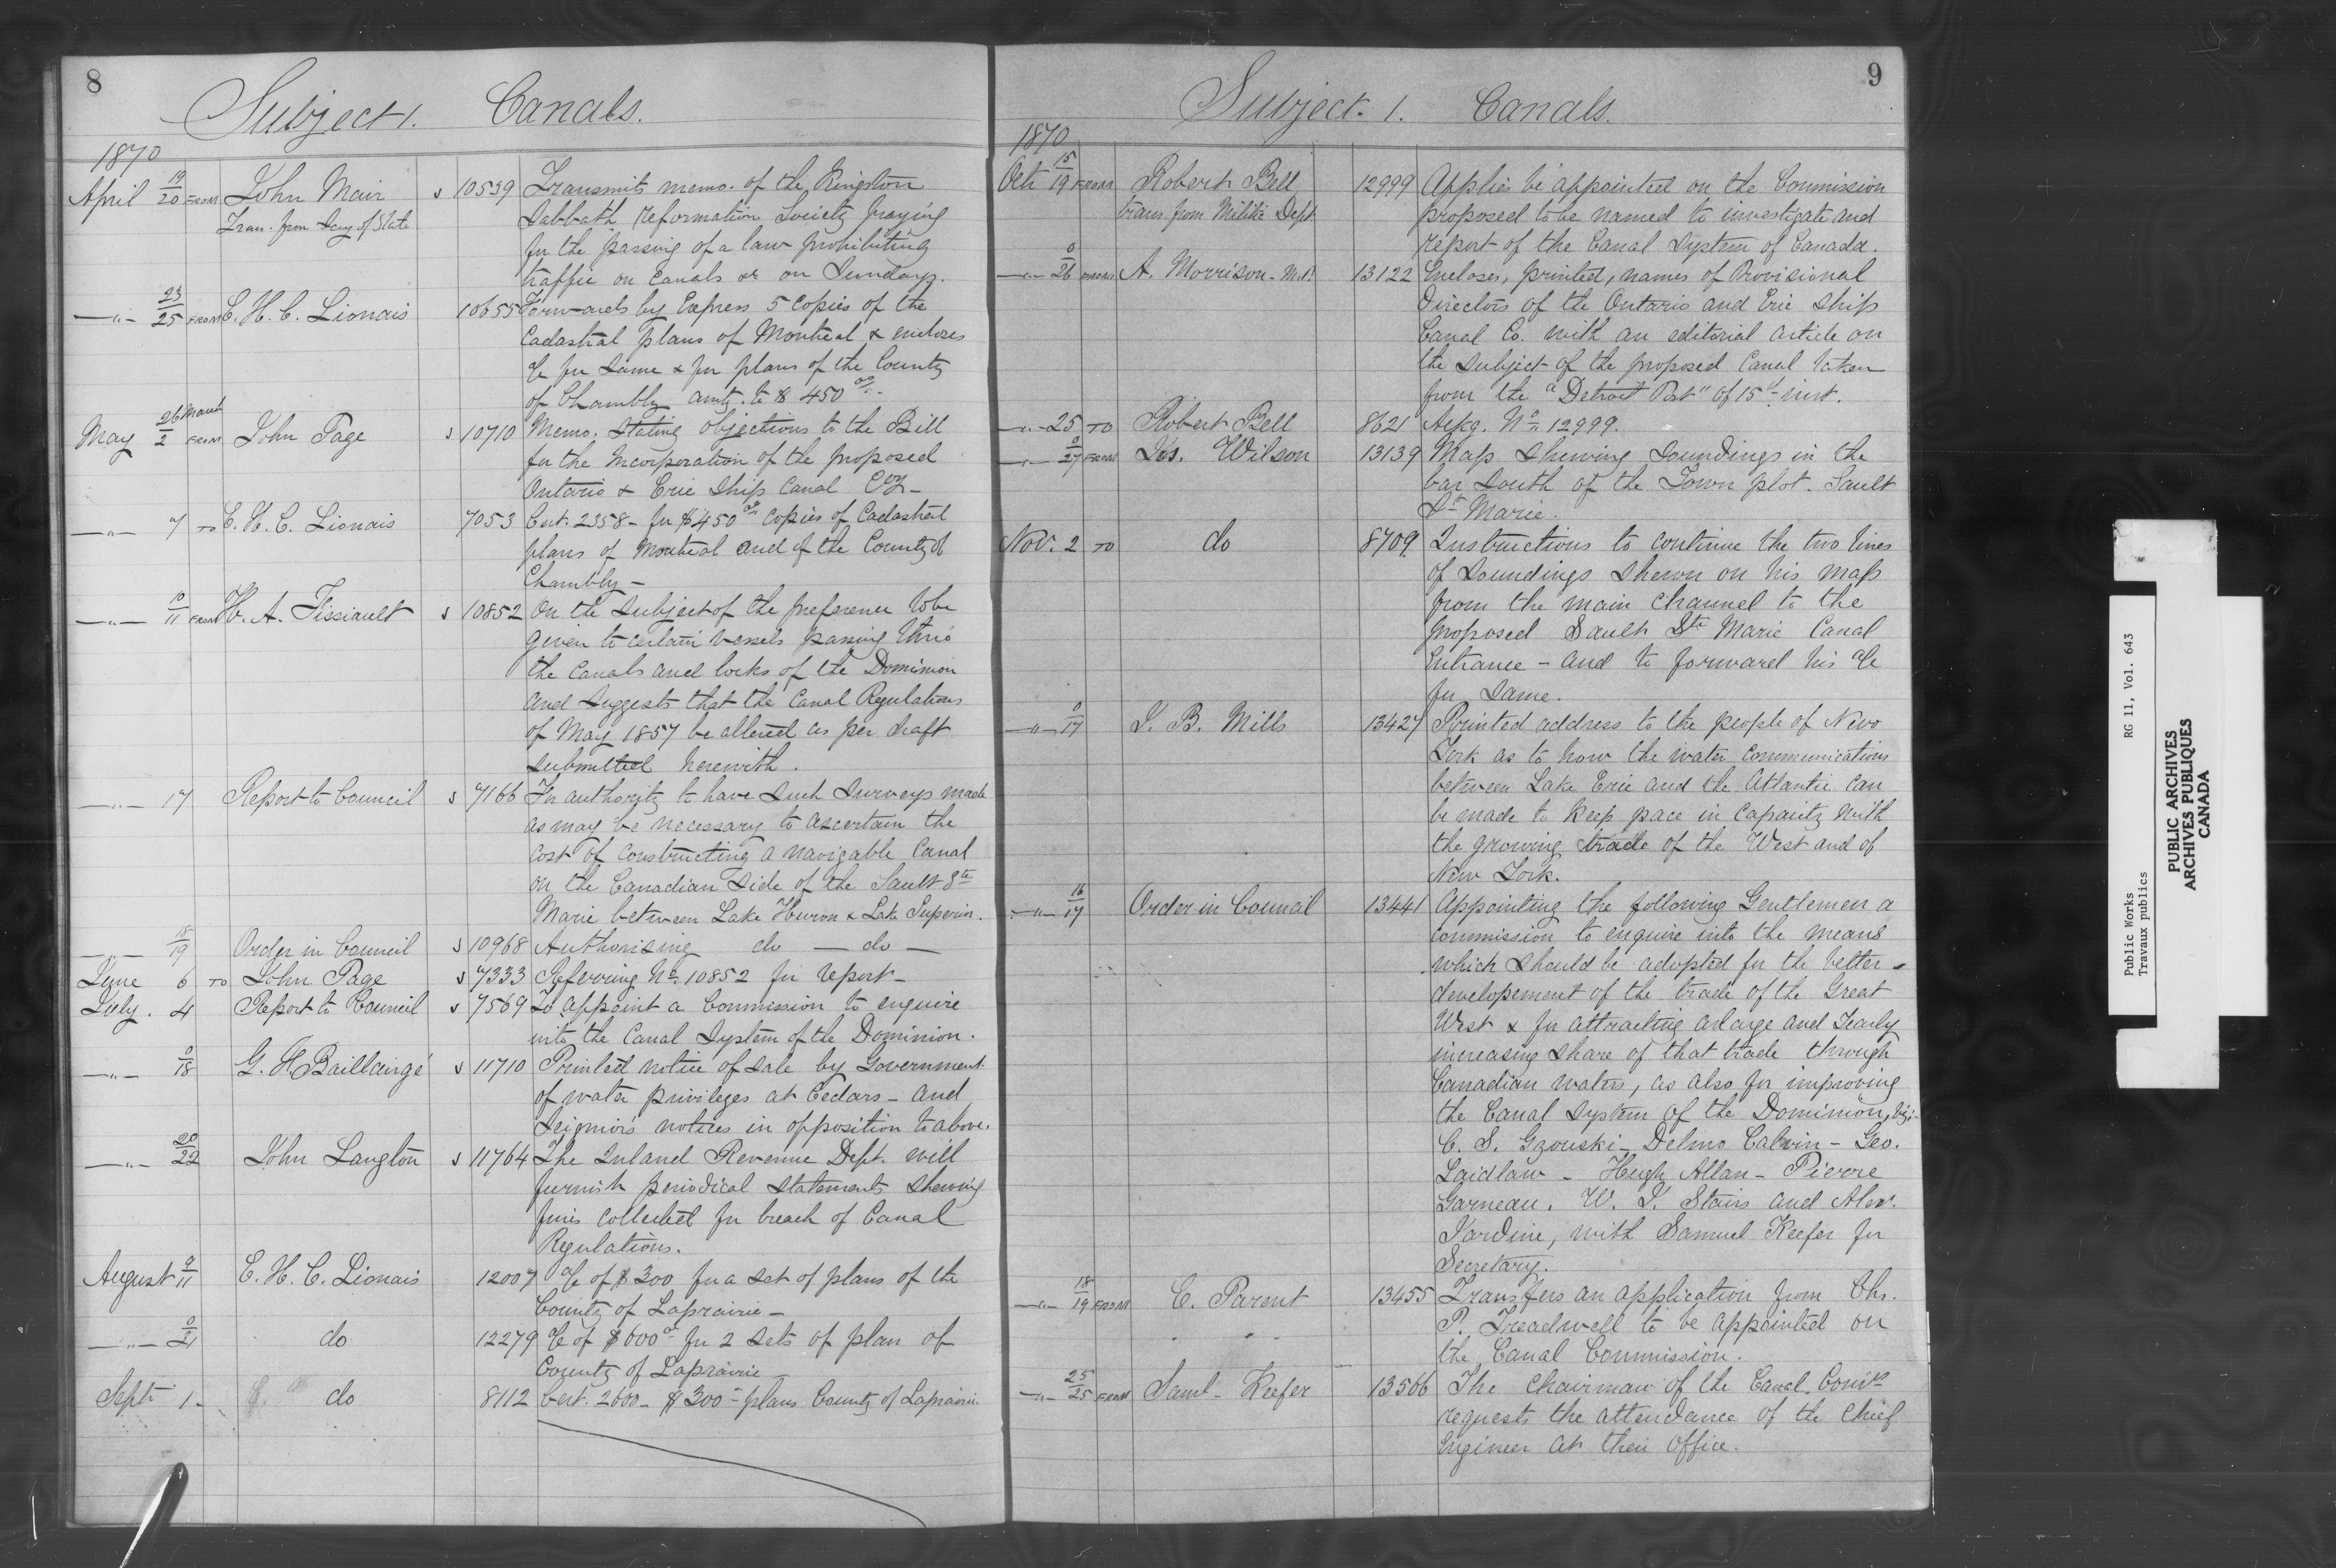 8
Subject 1. Canals.
1870
April 19/20 FROM John Mair s 10539 Transmits memo. of the Kingston
Tran. from Secy of State Sabbath reformation Society praying
for the passing of a law prohibiting
traffic on Canals &c on Sundays.
—"— 23/25 FROM E. H. C. Lionais 10655 Forwards by Express 5 copies of the
Cadastral plans of Montreal & encloses
a/c for same & for plans of the County
of Chambly amtg. to $450 00/..
May 26 March/2 FROM John Page s 10710 Memo. stating objections to the Bill
for the incorporation of the proposed
Ontario & Erie Ship Canal Coy—
—"— 7 TO E. H. C. Lionais 7053 Cert. 2358 – for $450 00 copies of Cadastral
plans of Montreal and of the County of
Chambly —
—"— 10/11 FROM H. A. Fissiault s 10852 On the subject of the preference to be
given to certain vessels passing thro'
the canals and locks of the Dominion
and suggests that the Canal Regulations
of May 1857 be altered as per draft
submitted herewith.
—"— 17 Report to Council s 7166 For authority to have such surveys made
as may be necessary to ascertain the
cost of constructing a navigable Canal
on the Canadian side of the Sault Ste
Marie between Lake Huron & Lake Superior.
—"— 18/19 Order in Council s 10968 Authorising do — do —
June 6 TO John Page s 7333 Referring No. 10852 for report —
July. 4 Report to Council s 7569 To appoint a Commission to enquire
into the Canal System of the Dominion.
—"— 0/18 G. F. Baillairgé s 11710 Printed notice of sale by Government
of water privileges at Cedars – and
Seignior's notices in opposition to above.
—"— 20/22 John Langton s 11764 The Inland Revenue Dept. will
furnish periodical statements shewing
fines collected for breach of Canal
Regulations.
August 9/11 E. H. C. Lionais 12007 a/c of $300 for a set of plans of the
County of Laprairie —
—"— 0/21 do 12279 a/c of $600 00 for 2 sets of plan of
County of Laprairie
Sept 1 – do 8112 Cert. 2600 – $300 – plans County of Laprairie.
9
Subject. 1. Canals.
1870
Oct 15/19 FROM Robert Bell 12999 Applies be appointed on the Commission
trans. from Militia Dept proposed to be named to investigate and
report of the Canal System of Canada.
—"— 0/26 FROM A. Morrison – M.P. 13122 Encloses, printed, names of Provisional
Directors of the Ontario and Erie Ship
Canal Co. with an editorial article on
the subject of the proposed Canal taken
from the "Detroit Post" of 15th inst.
—"— 25 TO Robert Bell 8621 Ackg. No. 12999.
—"— 0/27 FROM Jos. Wilson 13139 Map shewing soundings in the
bar South of the Town plot. Sault
Ste Marie.
Nov. 2 TO do 8709 Instructions to continue the two lines
of soundings shewn on his map
from the main channel to the
proposed Sault Ste Marie Canal
Entrance – and to forward his a/c
for same.
—"— 0/17 J. B. Mills 13427 Printed address to the people of New
York as to how the water communications
between Lake Erie and the Atlantic can
be made to keep pace in capacity with
the growing trade of the West and of
New York.
—"— 16/17 Order in Council 13441 Appointing the following Gentlemen a
commission to enquire into the means
which should be adopted for the better
developement of the trade of the Great
West & for attracting a large and yearly
increasing share of that trade through
Canadian waters, as also for improving
the Canal System of the Dominion, viz:
C. S. Gzowski – Delino Calvin – Geo.
Laidlaw – Hugh Allan – Pierre
Garneau. W. J. Stairs and Alex.
Jardine, with Samuel Keefer for
Secretary.
—"— 18/19 FROM E. Parent 13455 Transfers an application from Chs.
P. Treadwell to be appointed on
the Canal Commission.
—"— 25/25 FROM Saml. Keefer 13566 The Chairman of the Canal Comn
requests the attendance of the Chief
Engineer at their Office.
Public Works RG 11, Vol. 643
Travaux publics
PUBLIC ARCHIVES
ARCHIVES PUBLIQUES
CANADA